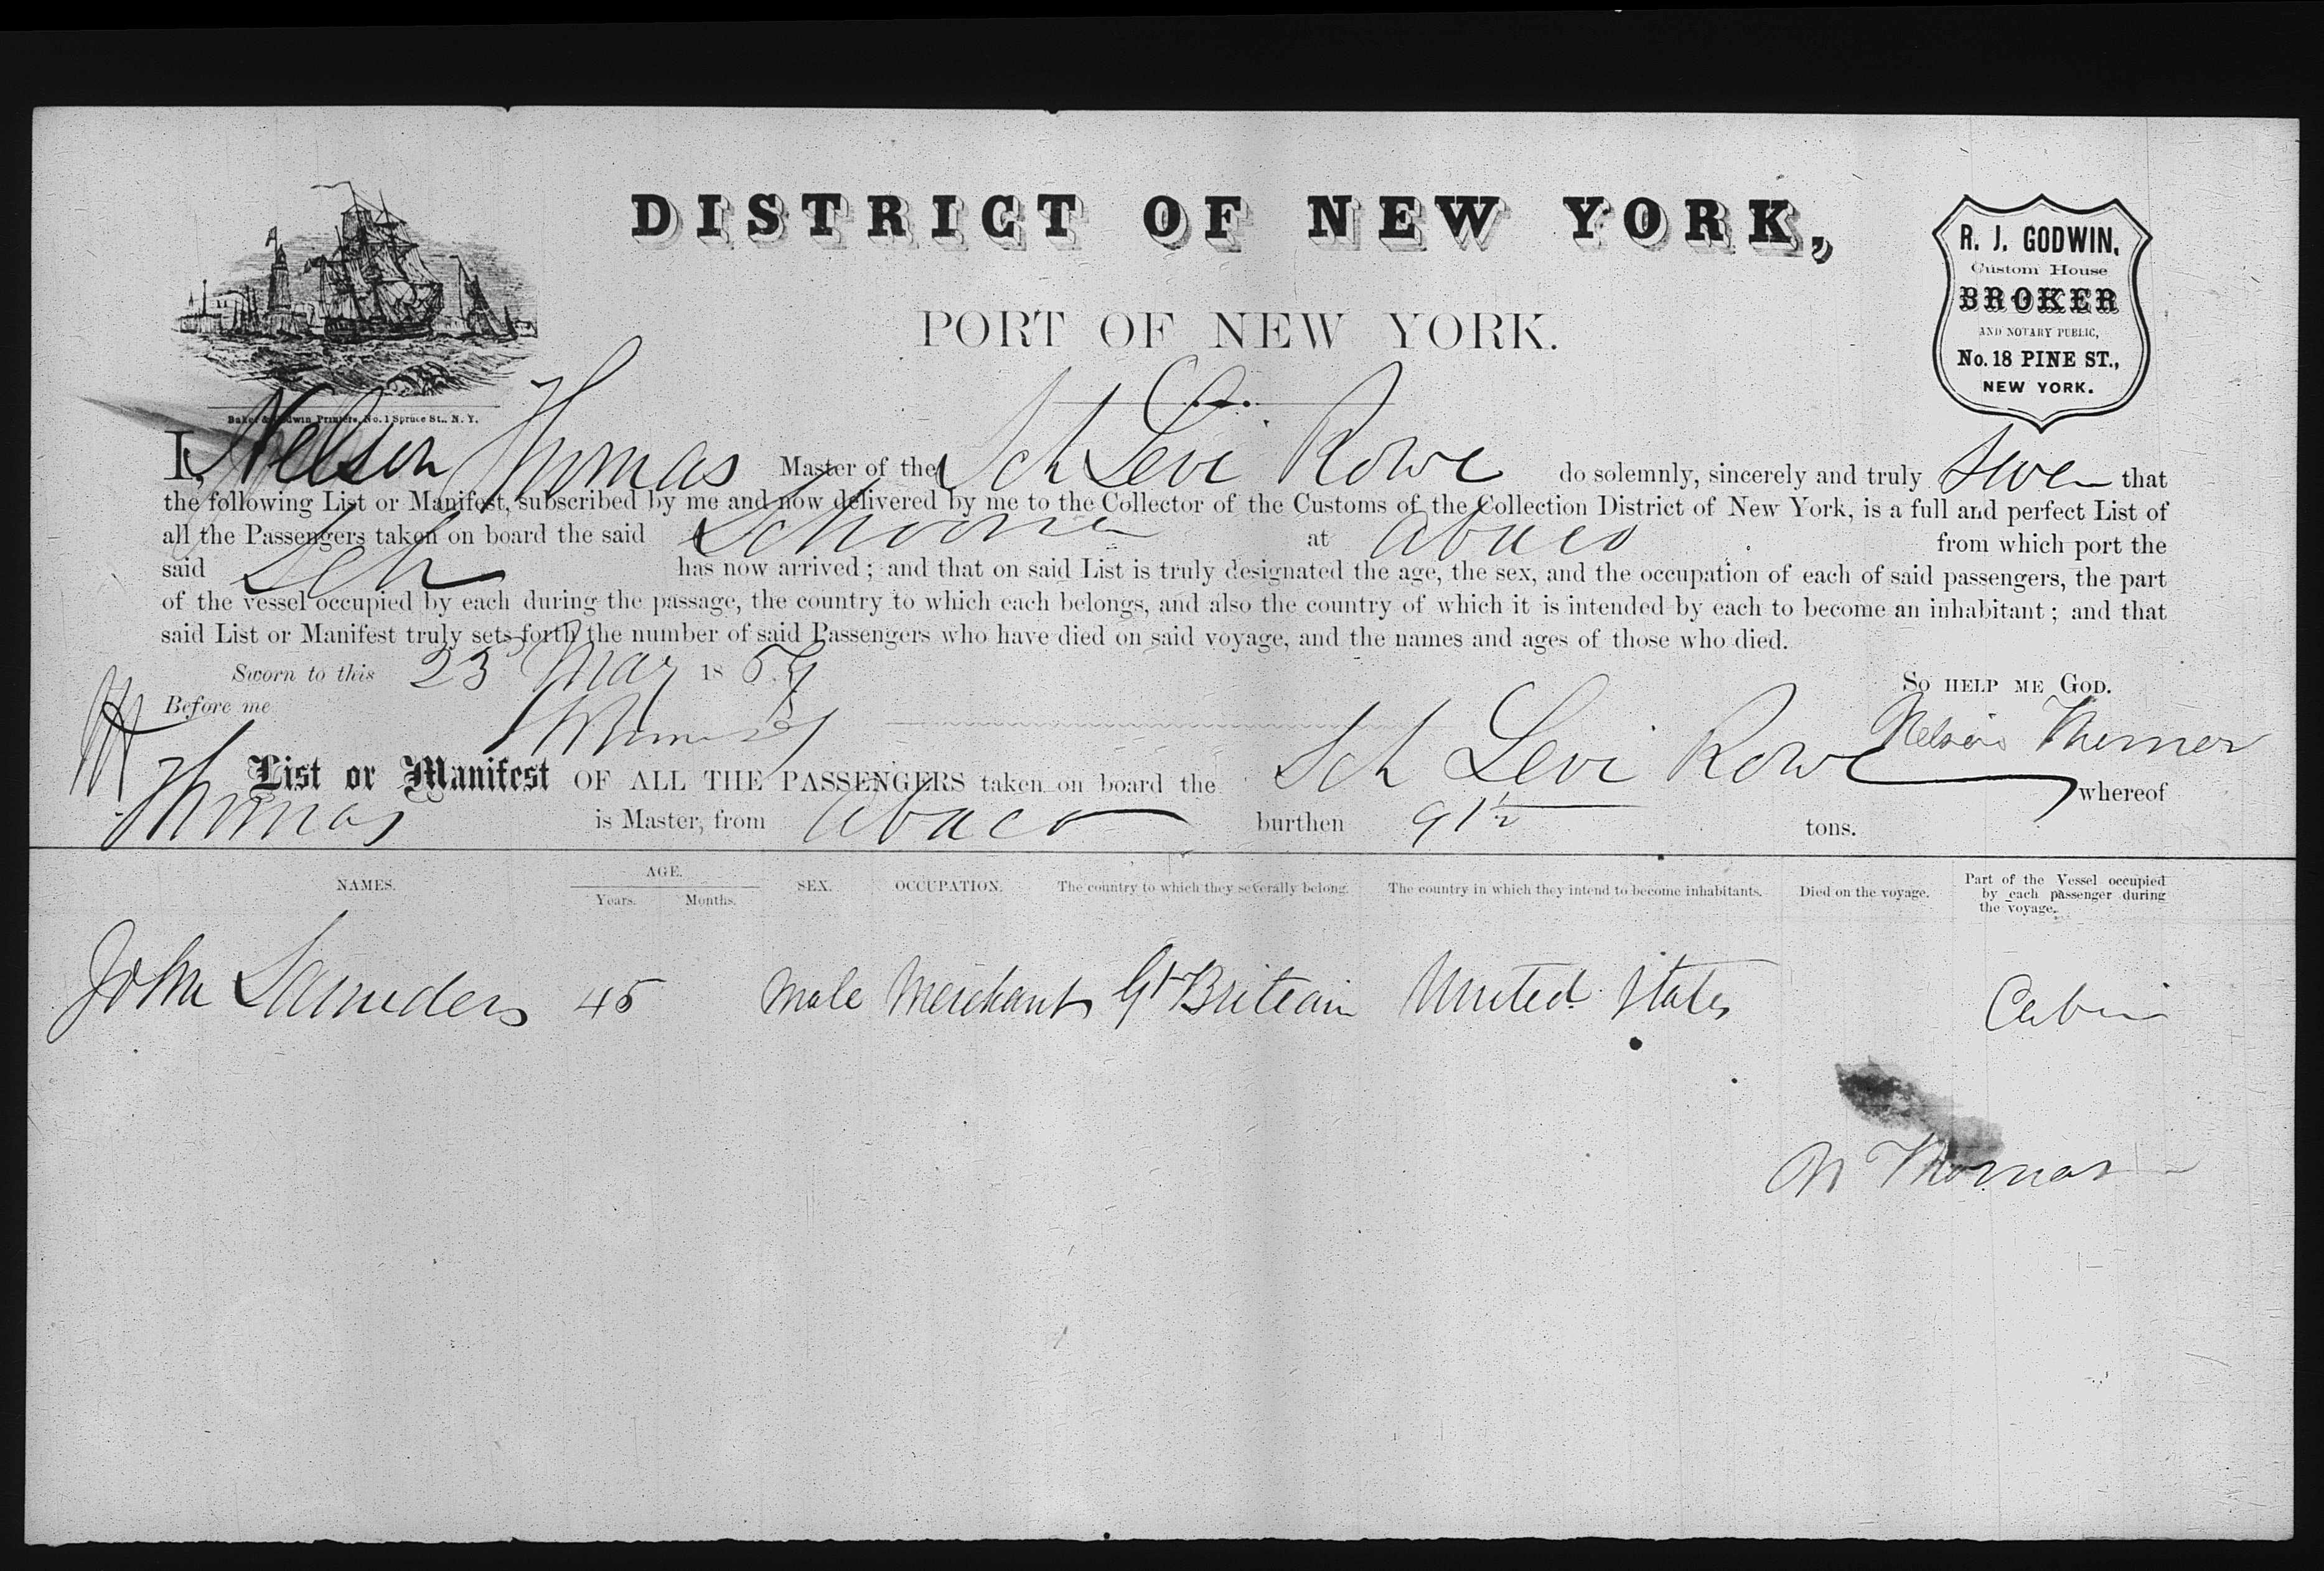 DISTRICT OF NEW YORK,
PORT OF NEW YORK.
R. J. GODWIN,
Custom House
BROKER
AND NOTARY PUBLIC,
No. 18 PINE ST.,
NEW YORK.
Baker & Godwin Printers, No. 1 Spruce St., N. Y.
I, Nelson Thomas Master of the Sch Levi Rowe do solemnly, sincerely and truly that
the following List or Manifest, subscribed by me and now delivered by me to the Collector of the Customs of the Collection District of New York, is a full and perfect List of
all the Passengers taken on board the said Schooner at Abaco from which port the
said Sch has now arrived; and that on said List is truly designated the age, the sex, and the occupation of each of said passengers, the part
of the vessel occupied by each during the passage, the country to which each belongs, and also the country of which it is intended by each to become an inhabitant; and that
said List or Manifest truly sets forth the number of said Passengers who have died on said voyage, and the names and ages of those who died.
Sworn to this 23 May 1859 So HELP ME GOD.
Before me Nelson
List or Manifest OF ALL THE PASSENGERS taken on board the Sch Levi Rowe whereof
N Thomas is Master, from Abaco burthen 91½ tons.
NAMES. AGE. SEX. OCCUPATION. The country to which they severally belong. The country in which they intend to become inhabitants. Died on the voyage. Part of the Vessel occupied by each passenger during the voyage.
Years. Months.
John Saunders 45 Male Merchant Gt Britain United States Cabin
N Thomas